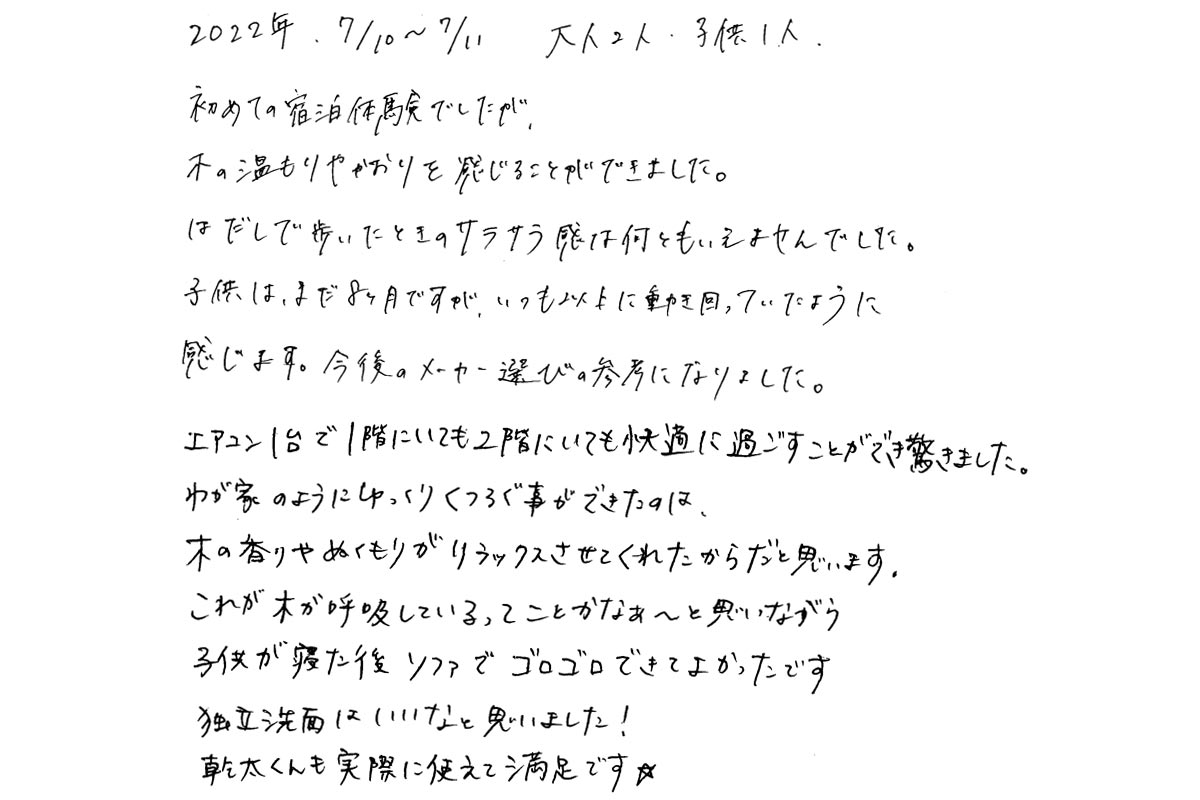 2022年.7/10～7/11 大人2人・子供1人.
初めての宿泊体験でしたが、
木の温もりやかおりを感じることができました。
はだしで歩いたときのサラサラ感は何ともいえませんでした。
子供は、まだ8ヶ月ですが、いつも以上に動き回っていたように
感じます。今後のメーカー選びの参考になりました。
エアコン1台で1階にいても2階にいても快適に過ごすことができ驚きました。
わが家のようにゆっくりくつろぐ事ができたのは、
木の香りやぬくもりがリラックスさせてくれたからだと思います.
これが木が呼吸しているってことかなぁ～と思いながら
子供が寝た後ソファでゴロゴロできてよかったです
独立洗面はいいなと思いました!
乾太くんも実際に使えて満足です☆